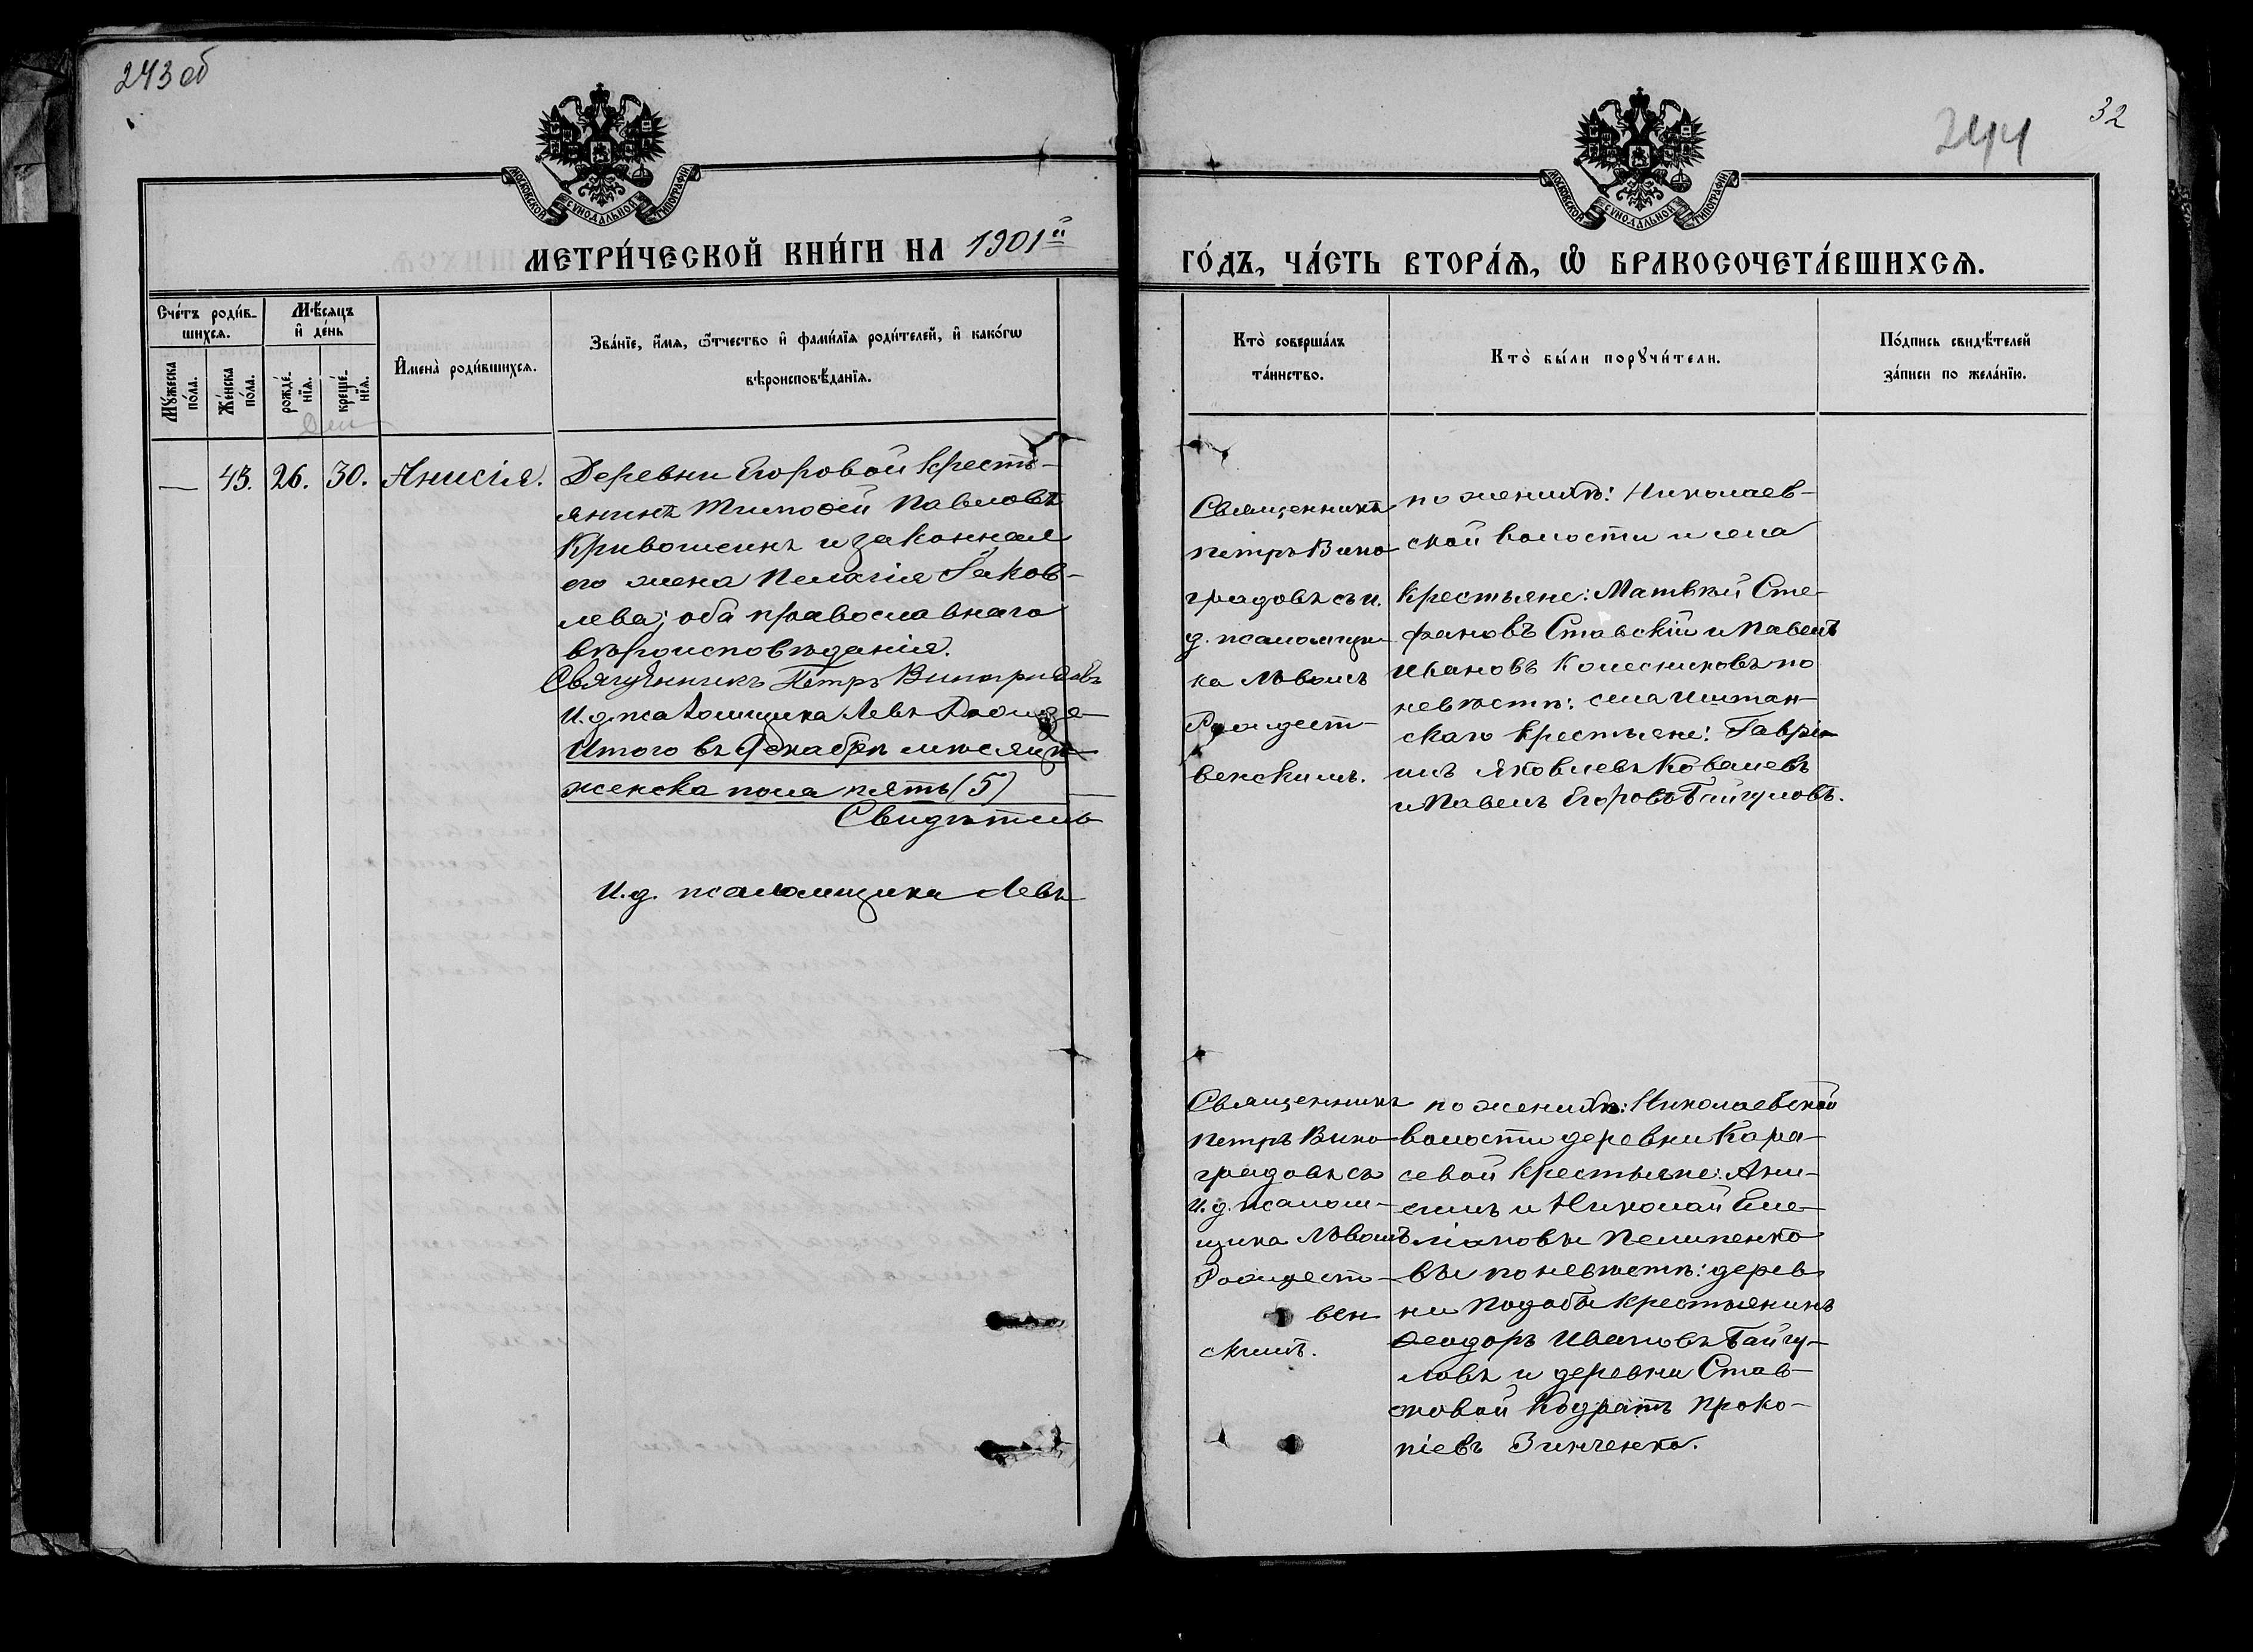 243 об
МОСКОВСКОЙ СѴНОДАЛЬНОЙ ТИПОГРАФІИ
МЕТРИ́ЧЕСКОЙ КНИ́ГИ НА 1901й
Сче́тъ роди́в-
шихся.
Мѣ́сяцъ
и҆ де́нь
Му́жеска
по́ла.
Же́нска
по́ла.
рожде́-
нїя.
креще́-
нїя.
И҆мена̀ роди́вшихся.
Зва́нїе, и҆́мя, ѻ҆́тчество и҆ фами́лїя роди́телей, и҆ како́гѡ
вѣроисповѣ́данїя.
— 43. 26. 30. Анисія.
Деревни Егоровой кресть-
янинъ Тимоѳей Павловъ
Кривошеинъ и законная
его жена Пелагія Яков-
лева; оба православнаго
вѣроисповѣданія.
Священникъ Петръ Виноградовъ
И. д. псаломщика Левъ
Итого въ Декабрѣ мѣсяцѣ
женска пола пять (5)
Свидѣтель
И. д. псаломщика Левъ
32
244
МОСКОВСКОЙ СѴНОДАЛЬНОЙ ТИПОГРАФІИ
ГО́ДЪ, ЧА́СТЬ ВТОРА́Я, Ѡ҆ БРАКОСОЧЕТА́ВШИХСЯ.
Кто̀ соверша́лъ
та́инство.
Кто̀ бы́ли порꙋчи́тели.
По́дпись свидѣ́телей
за́писи по жела́нїю.
Священникъ
Петръ Вино
градовъ съ и.
д. псаломщи-
ка Львомъ
Рождест-
венскимъ.
по женихѣ: Николаев-
ской волости и села
крестьяне: Матвѣй Сте-
фановъ Ставскій и Павелъ
Ивановъ Колесниковъ по
невѣстѣ: села Иштан-
скаго крестьяне: Гаврі-
илъ Яковлевъ Ковалевъ
и Павелъ Егоровъ Байгуловъ.
Священникъ
Петръ Вино-
градовъ съ
И. д. псалом-
щика Львомъ
Рождест-
вен
скимъ.
по женихѣ: Николаевской
волости деревни Кара-
севой крестьяне: Ани-
симъ и Николай Еме-
ліановы Пелипенко
вы по невѣстѣ: дерев
ни Подабы крестьянинъ
Ѳеодоръ Ивановъ Байгу-
ловъ и деревни Став-
сковой Кодратъ Проко-
піевъ Зинченко.